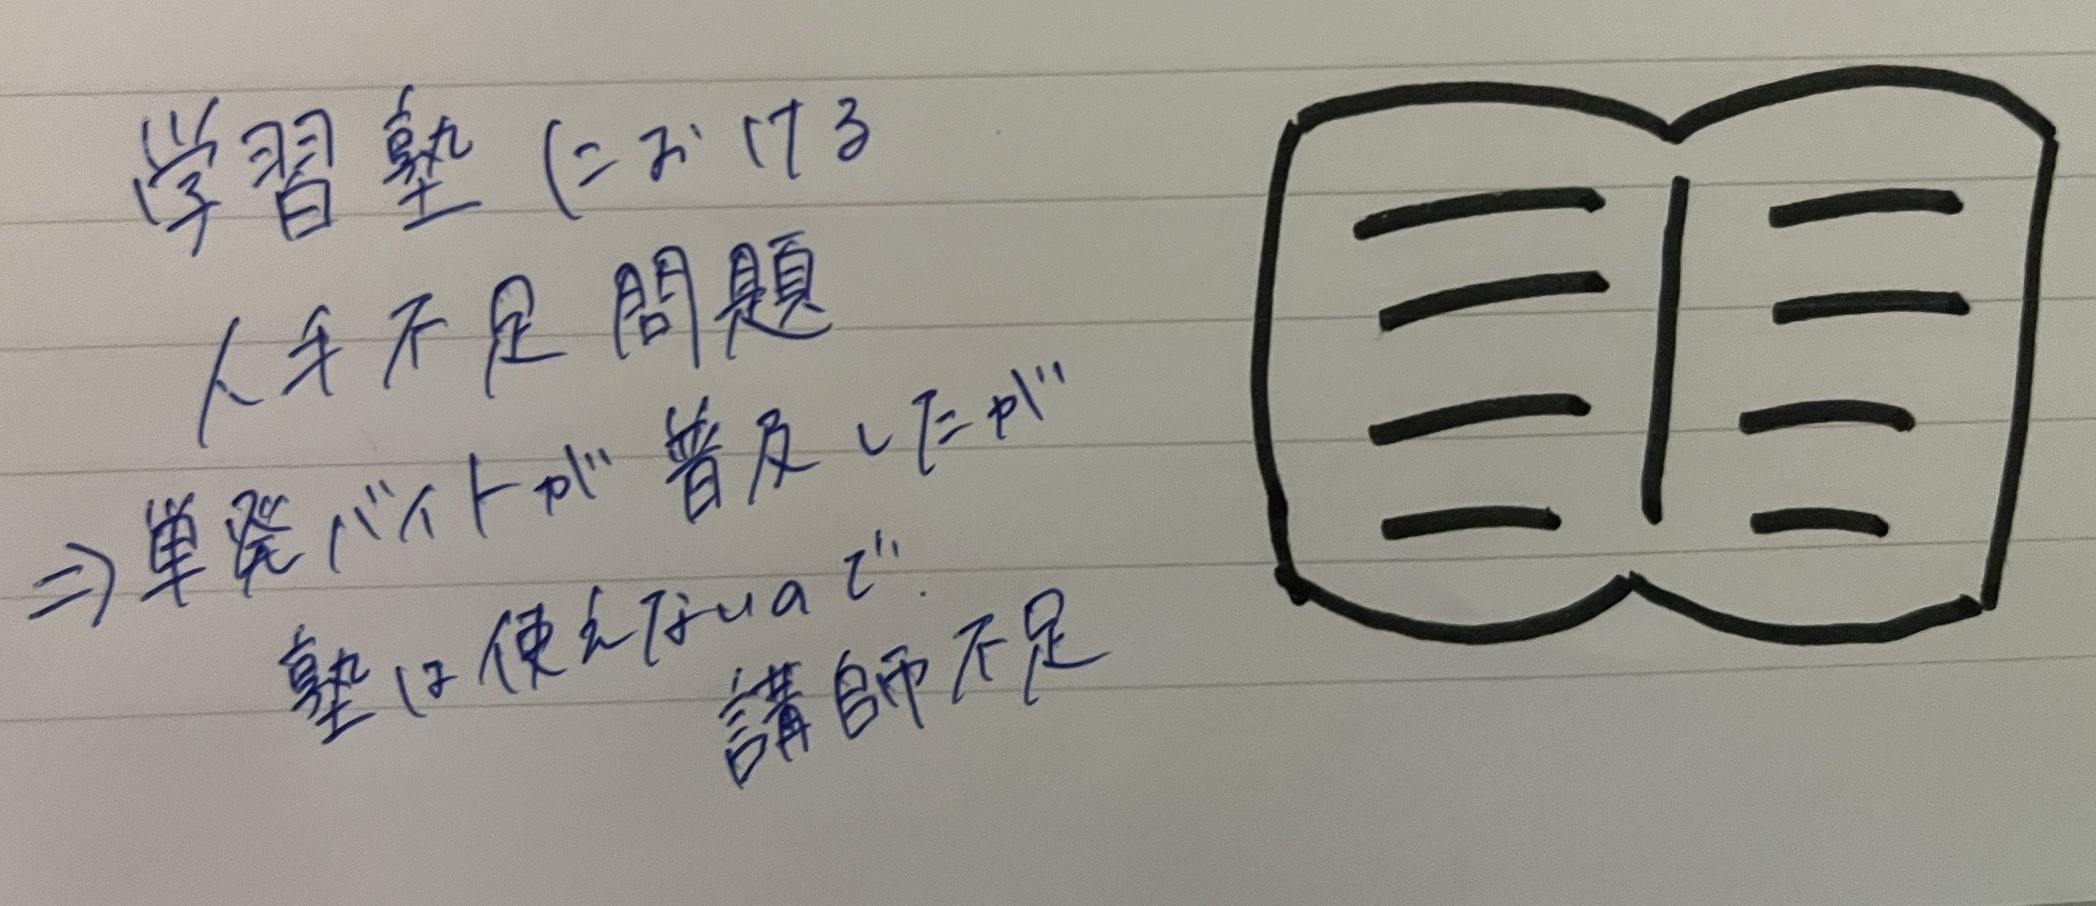 学習塾における
人手不足問題
⇒単発バイトが普及したが
塾は使えないので.
講師不足